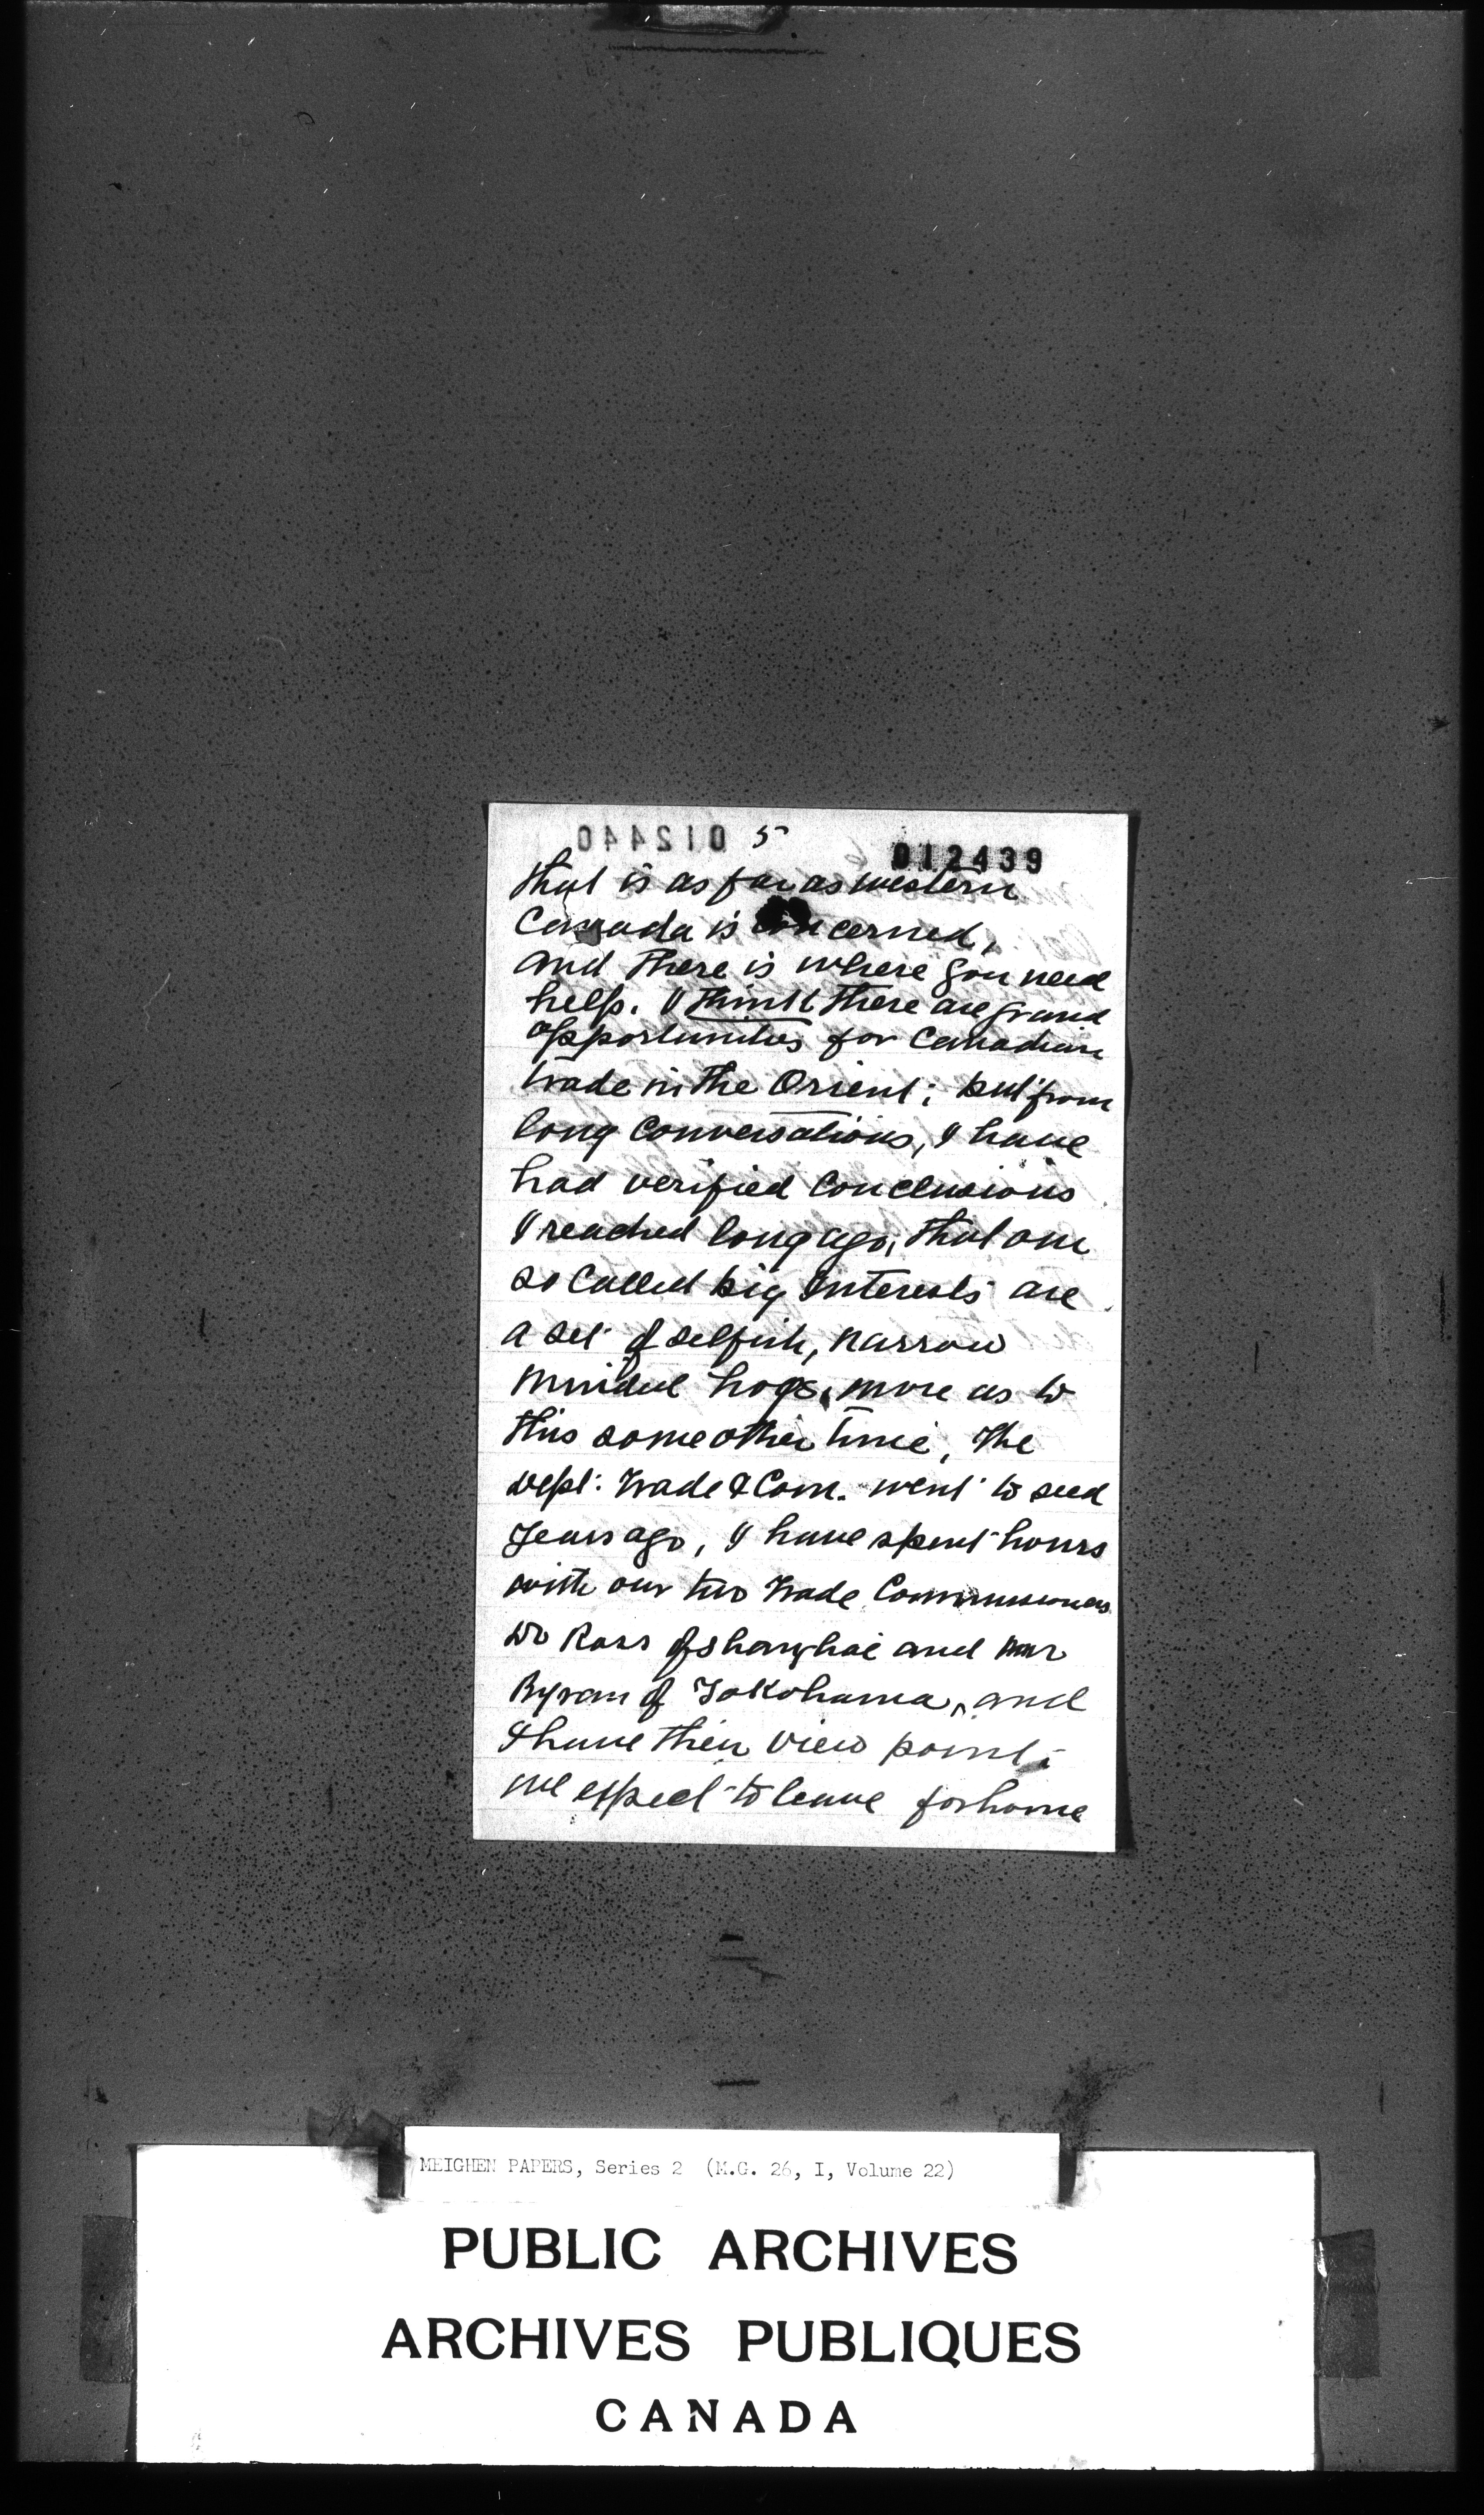 012440 5 012439
that is as far as western
Canada is concerned,
and there is where you need
help. I think there are grand
opportunities for Canadian
trade in the Orient; but from
long conversations, I have
had verified conclusions
I reached long ago, that our
so called big Interests are
a set of selfish, narrow
minded hogs, more as to
this some other time, The
Dept: Trade & Com. went to seed
years ago, I have spent hours
with our two Trade Commissioners
Dr Ross of Shanghai and Mr
Bryan of Yokohama, and
I have their view point;
we expect to leave for home
MEIGHEN PAPERS, Series 2 (M.G. 26, I, Volume 22)
PUBLIC ARCHIVES
ARCHIVES PUBLIQUES
CANADA